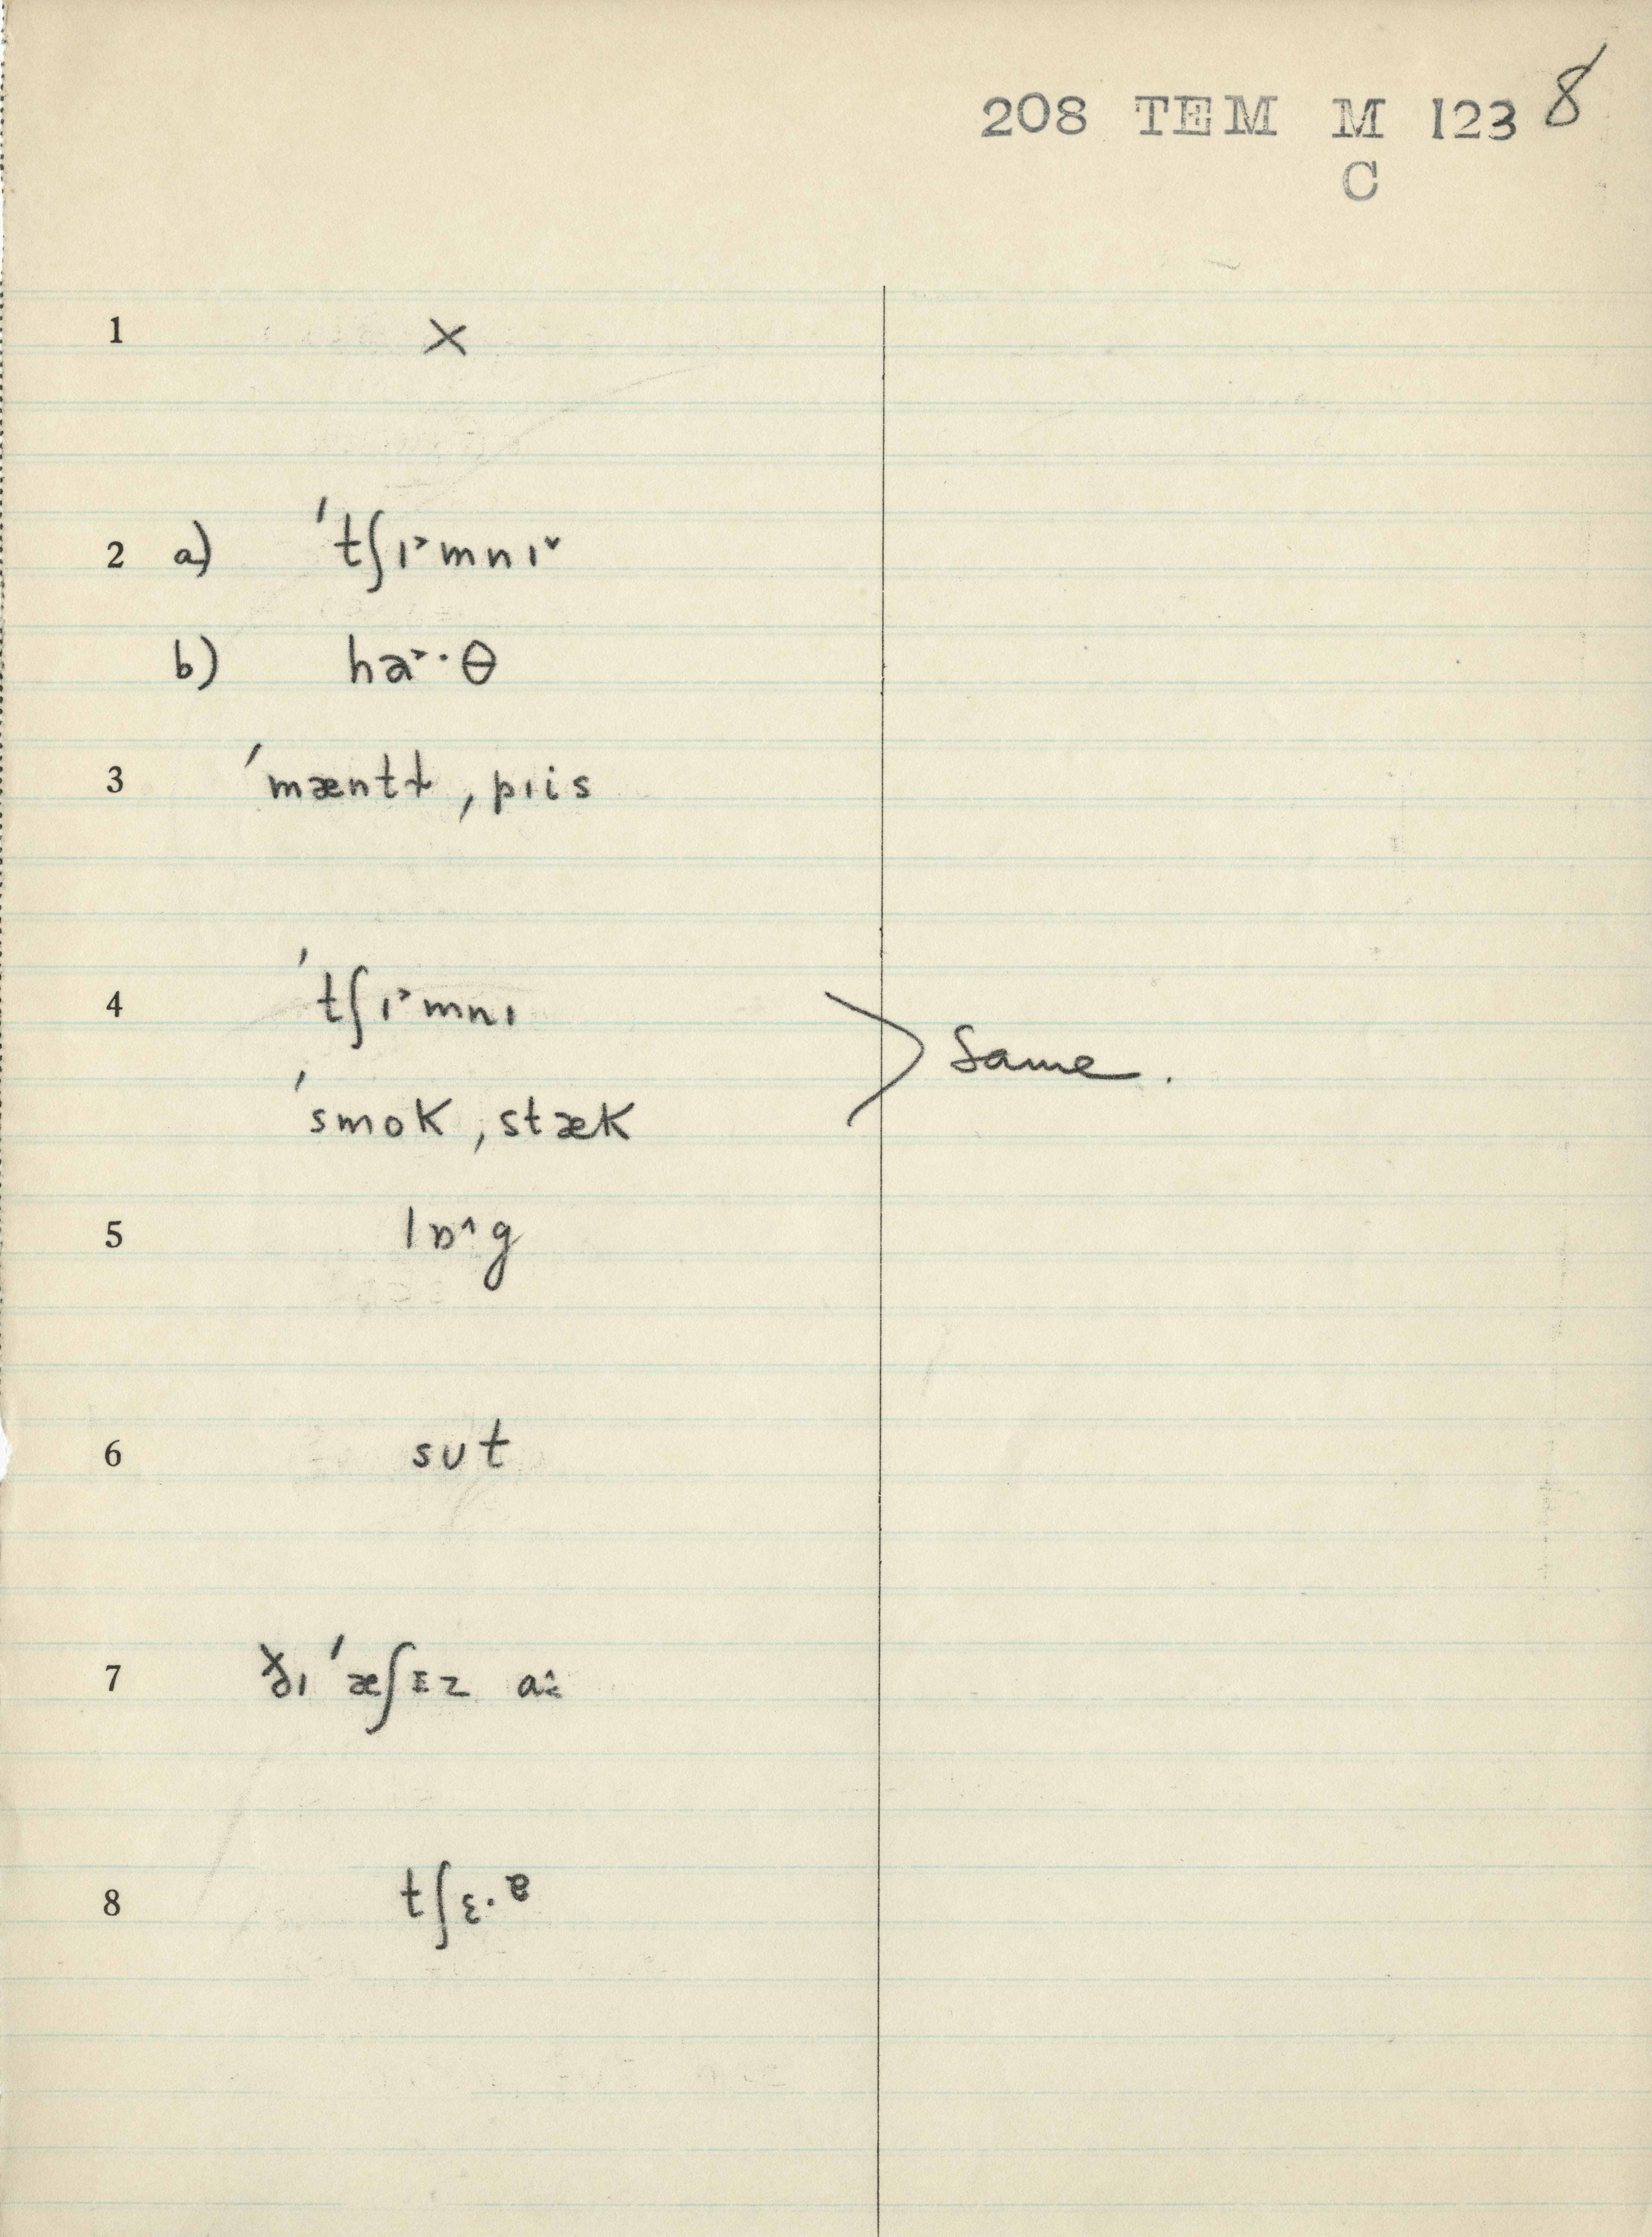 208 TEM M 123 8
C
1 ×
2 a) ˈtʃɪ˃mnɪ˅
b) ha˃·θ
3 ˈmæntɫ ˌpɪis
4 ˈtʃɪ˃mnɪ
> Same.
ˈsmok ˌstæk
5 lɒ˄g
6 sut
7 ˈæʃ z
8 tʃɛ·ɐ